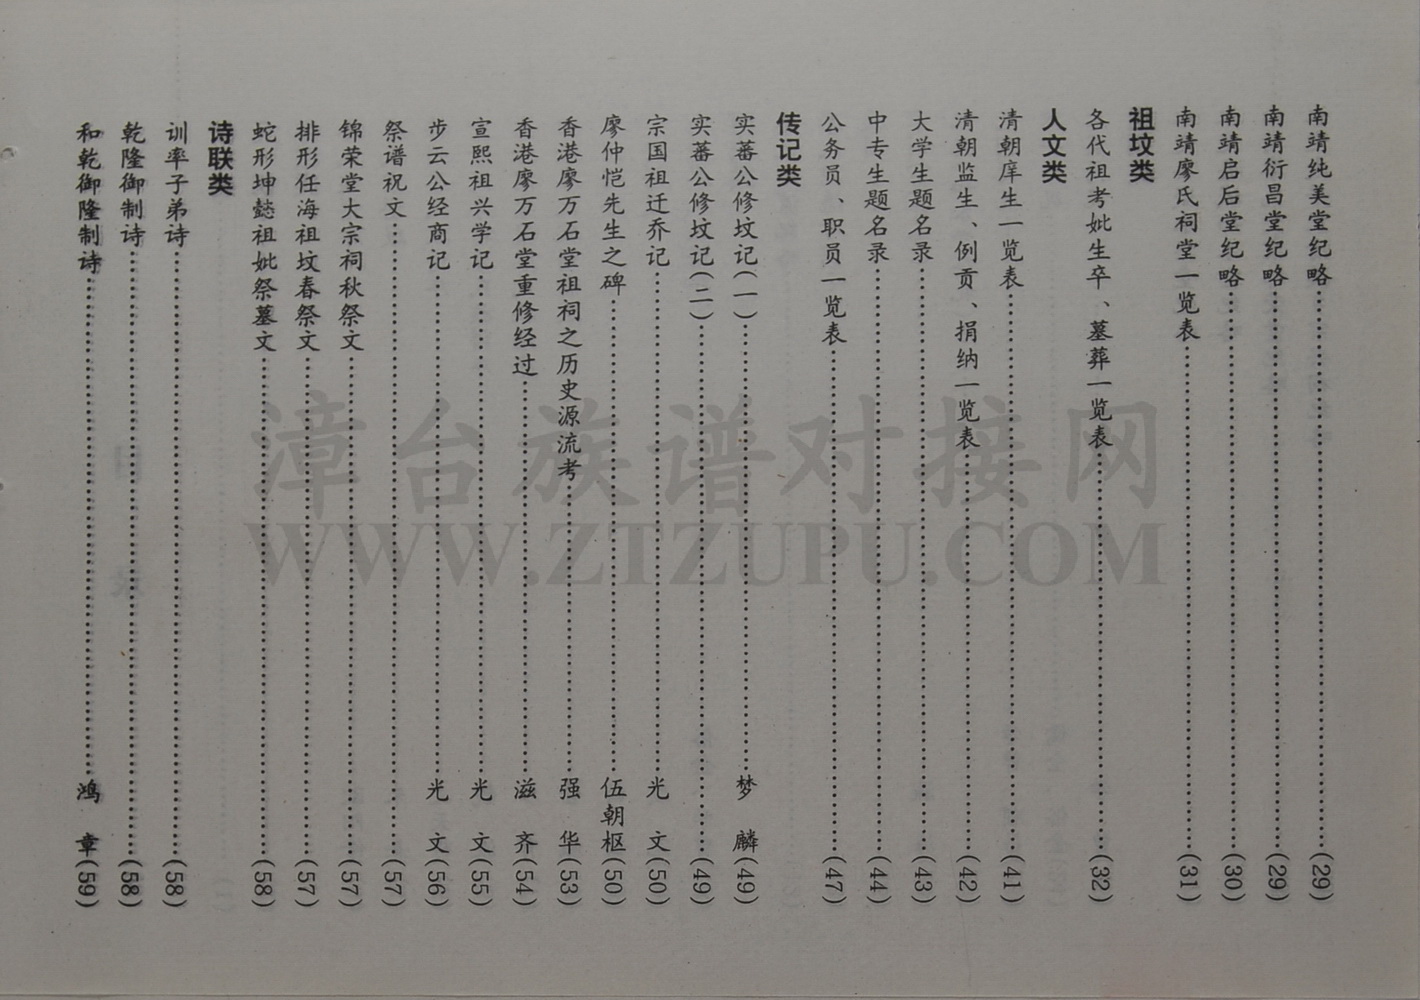 南靖纯美堂纪略……(29)
南靖衍昌堂纪略……(29)
南靖启后堂纪略……(30)
南靖廖氏祠堂一览表……(31)
祖坟类
各代祖考妣生卒、墓葬一览表……(32)
人文类
清朝庠生一览表……(41)
清朝监生、例贡、捐纳一览表……(42)
大学生题名录……(43)
中专生题名录……(44)
公务员、职员一览表……(47)
传记类
实蕃公修坟记(一)……梦 麟(49)
实蕃公修坟记(二)……(49)
宗国祖迁乔记……光 文(50)
廖仲恺先生之碑……伍朝枢(50)
香港廖万石堂祖祠之历史源流考……强 华(53)
香港廖万石堂重修经过……滋 齐(54)
宣熙祖兴学记……光 文(55)
步云公经商记……光 文(56)
祭谱祝文……(57)
锦荣堂大宗祠秋祭文……(57)
排形任海祖坟春祭文……(57)
蛇形坤懿祖妣祭墓文……(58)
诗联类
训率子弟诗……(58)
乾隆御制诗……(58)
和乾御隆制诗……鸿 章(59)
漳台族谱对接网
WWW.ZTZUPU.COM